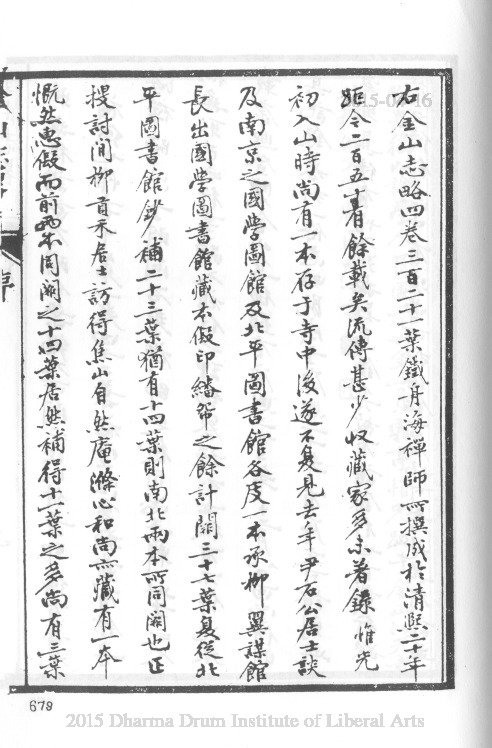 右金山志略四卷三百二十一葉鐵身海禪師所撰成於清熙二十年
距今二百五十有餘載矣流傳甚少收藏家多未著錄惟光
初入山時尚有一本存于寺中後遂不復見去年尹石公居士談
及南京之國學圖館及北平圖書館各庋一本承柳翼謀館
長出國學圖書館藏本假印繙帋之餘計闕三十七葉复從北
平圖書館鈔補二十三葉猶有十四葉則南北兩本所同闕也正
搜討间柳貢禾居士訪得焦山自然庵滌心和尚所藏有一本
慨然惠假而前兩本同闕之十四葉居然補得十一葉之多尚有三葉
序
679
2015 Dharma Drum Institute of Liberal Arts